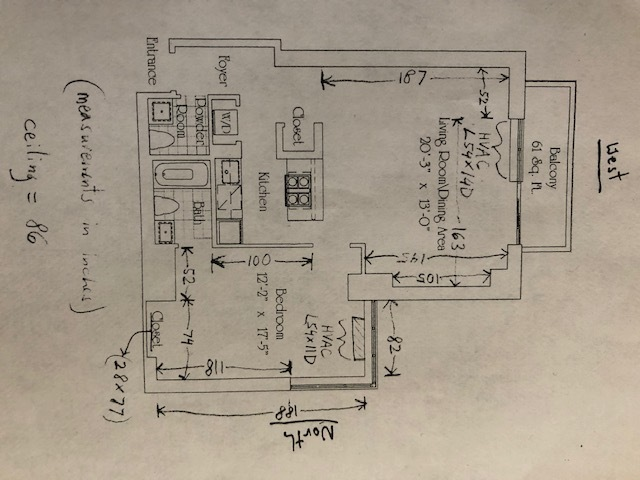 West
Balcony
61 Sq. Ft.
187
52
HVAC
L54x14D
Living Room/Dining Area
20'-3" x 13'-0"
163
145
105
Entrance
Foyer
Powder
Room
W/D
Closet
Kitchen
Bath
100
52
74
Bedroom
12'-2" x 17'-5"
HVAC
L54x11D
82
Closet
118
(28x77)
188
North
(measurements in inches)
ceiling = 86